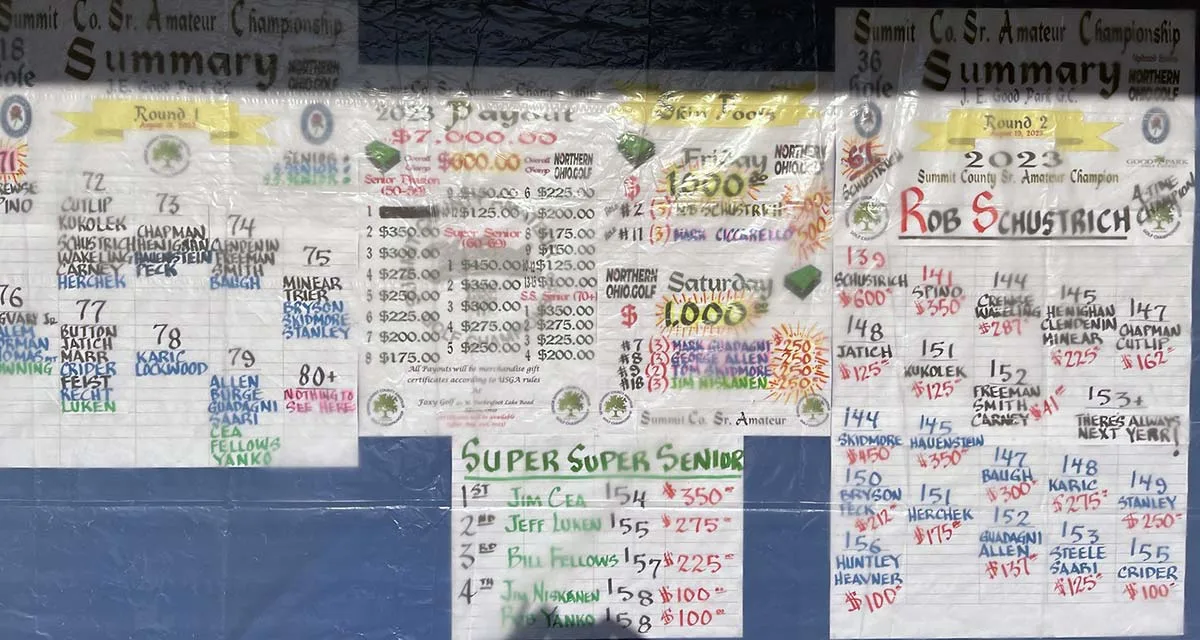 Summit Co. Sr. Amateur Championship
18
Hole
Summary
NORTHERN
OHIO.GOLF
J. E. Good Park G.C.
Round 1
71
PINO
72
CUTLIP
KUKOLEK
SCHUSTRICH
WAKELING
CARNEY
HERCHEK
73
CHAPMAN
HENIGHAN
HAUENSTEIN
PECK
74
CLENDENIN
FREEMAN
SMITH
BAUGH
75
MINEAR
TRIER
BRYSON
SKIDMORE
STANLEY
76
77
BUTTON
JATICH
MARR
CRIDER
FEIST
RECHT
LUKEN
78
KARIC
LOCKWOOD
79
ALLEN
BURGE
GUADAGNI
SAARI
CEA
FELLOWS
YANKO
80+
NOTHING TO
SEE HERE
2023 Payout
$7,000.00
Overall
Champ
$600.00
Overall
Champ
NORTHERN
OHIO.GOLF
Senior Division
(50-59)
1
2 $350.00
3 $300.00
4 $275.00
5 $250.00
6 $225.00
7 $200.00
8 $175.00
9 $150.00
10 $125.00
Super Senior
(60-69)
1 $450.00
2 $350.00
3 $300.00
4 $275.00
5 $250.00
6 $225.00
7 $200.00
8 $175.00
9 $150.00
$125.00
S.S. Senior (70+)
1 $350.00
2 $275.00
3 $225.00
4 $200.00
All Payouts will be merchandise gift
certificates according to USGA rules
at
Foxy Golf
Skin Pools
Friday
NORTHERN
OHIO.GOLF
$
#2 (3) ROB SCHUSTRICH
#11 (3) MARK CICCARELLO
NORTHERN
OHIO.GOLF
Saturday
$ 1,000
#7 (3) MARK GUADAGNI 250
#8 (2) GEORGE ALLEN 250
#9 (2) TOM SKIDMORE 250
#18 (3) JIM NISKANEN 250
Summit Co. Sr. Amateur
SUPER SUPER SENIOR
1ST JIM CEA 154 $350
2ND JEFF LUKEN 155 $275
3RD BILL FELLOWS 157 $225
4TH JIM NISKANEN 158 $100
YANKO 158 $100
Summit Co. Sr. Amateur Championship
36
Hole
Summary
NORTHERN
OHIO.GOLF
J. E. Good Park G.C.
Round 2
August 19, 2023
SCHUSTRICH
2023
Summit County Sr. Amateur Champion
GOOD PARK
4-TIME
CHAMPION!
ROB SCHUSTRICH
139
SCHUSTRICH
$600
141
SPINO
$350
144
CREWSE
WAKELING
$287
145
HENIGHAN
CLENDENIN
MINEAR
$225
147
CHAPMAN
CUTLIP
$162
148
JATICH
$125
151
KUKOLEK
$125
152
FREEMAN
SMITH
CARNEY
$41
153+
THERE'S ALWAYS
NEXT YEAR!
144
SKIDMORE
$450
145
HAUENSTEIN
$350
147
BAUGH
$300
148
KARIC
$275
149
STANLEY
$250
150
BRYSON
PECK
$212
151
HERCHEK
$175
152
GUADAGNI
ALLEN
$137
153
STEELE
SAARI
$125
155
CRIDER
$100
156
HUNTLEY
HEAVNER
$100